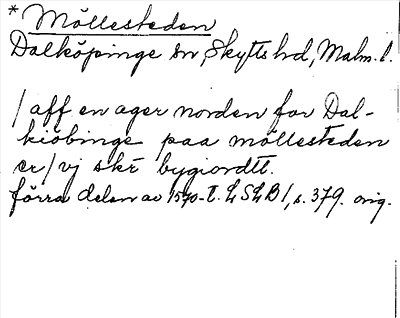 * Möllesteden
Dalköpinge sn, Skytts hd, Malm. l.
/ aff en ager norden for Dal-
kiöbinge paa möllesteden
er/ vj skr̄ bygiordtt.
förra delen av 1570-t. LSLB 1, s. 379. orig.